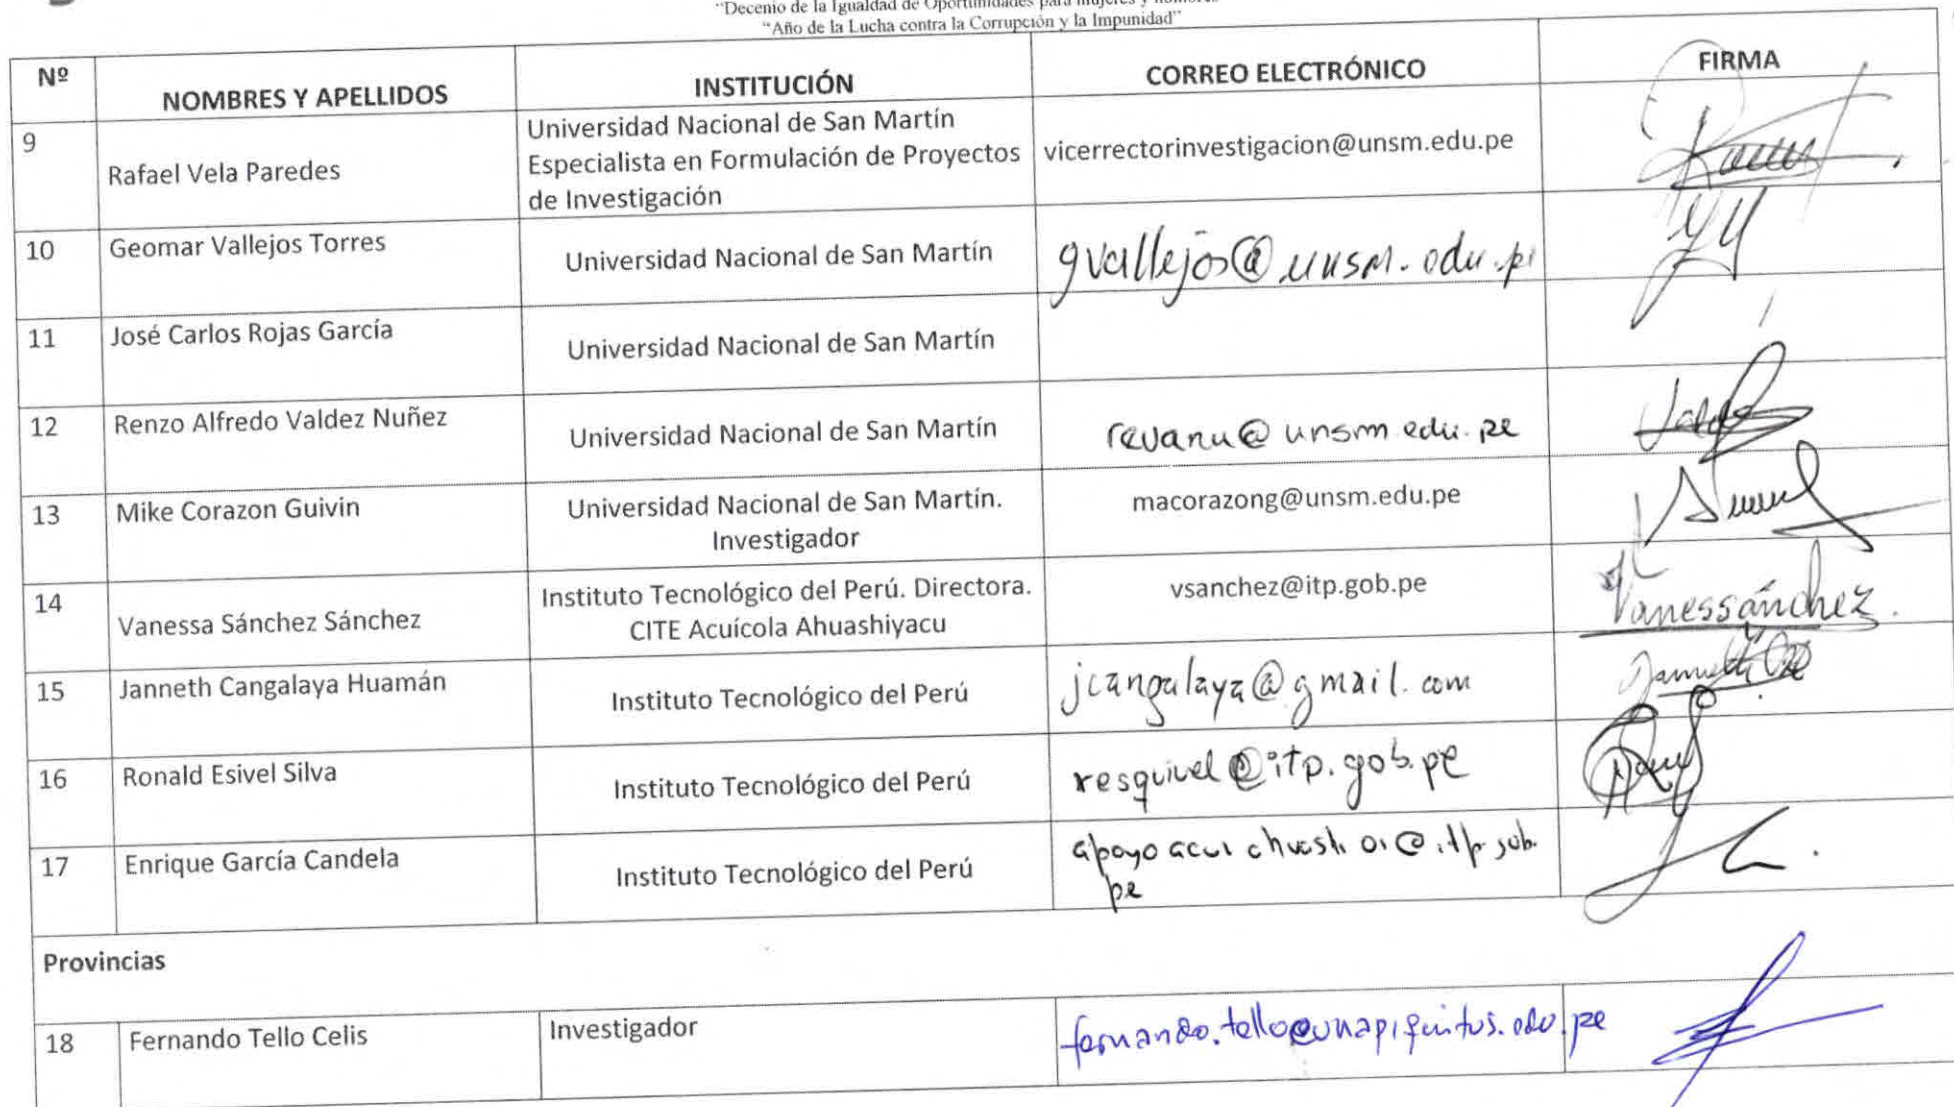 "Decenio de la Igualdad de Oportunidades para mujeres y hombres"
"Año de la Lucha contra la Corrupción y la Impunidad"
Nº NOMBRES Y APELLIDOS INSTITUCIÓN CORREO ELECTRÓNICO FIRMA
9 Rafael Vela Paredes Universidad Nacional de San Martín
Especialista en Formulación de Proyectos
de Investigación vicerrectorinvestigacion@unsm.edu.pe
10 Geomar Vallejos Torres Universidad Nacional de San Martín gvallejos@unsm.edu.pe
11 José Carlos Rojas García Universidad Nacional de San Martín
12 Renzo Alfredo Valdez Nuñez Universidad Nacional de San Martín revanu@unsm.edu.pe
13 Mike Corazon Guivin Universidad Nacional de San Martín.
Investigador macorazong@unsm.edu.pe
14 Vanessa Sánchez Sánchez Instituto Tecnológico del Perú. Directora.
CITE Acuícola Ahuashiyacu vsanchez@itp.gob.pe Vanessánchez.
15 Janneth Cangalaya Huamán Instituto Tecnológico del Perú jcangalaya@gmail.com
16 Ronald Esivel Silva Instituto Tecnológico del Perú resquivel@itp.gob.pe
17 Enrique García Candela Instituto Tecnológico del Perú
pe
Provincias
18 Fernando Tello Celis Investigador fernando.tello@unapiquitos.edu.pe